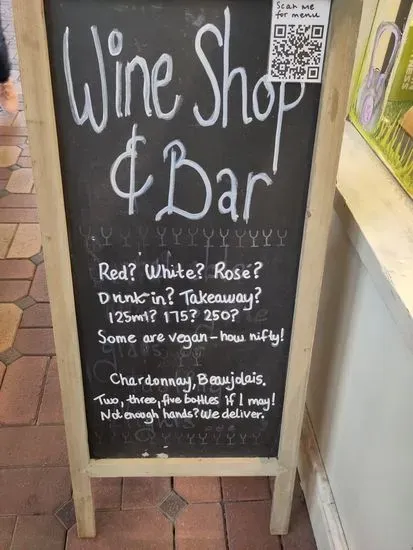 Scan me
for menu
Wine Shop
& Bar
Red? White? Rose?
Drink in? Takeaway?
125ml? 175? 250?
Some are vegan - how nifty!
Chardonnay, Beaujolais.
Two, three, five bottles if I may!
Not enough hands? We deliver.